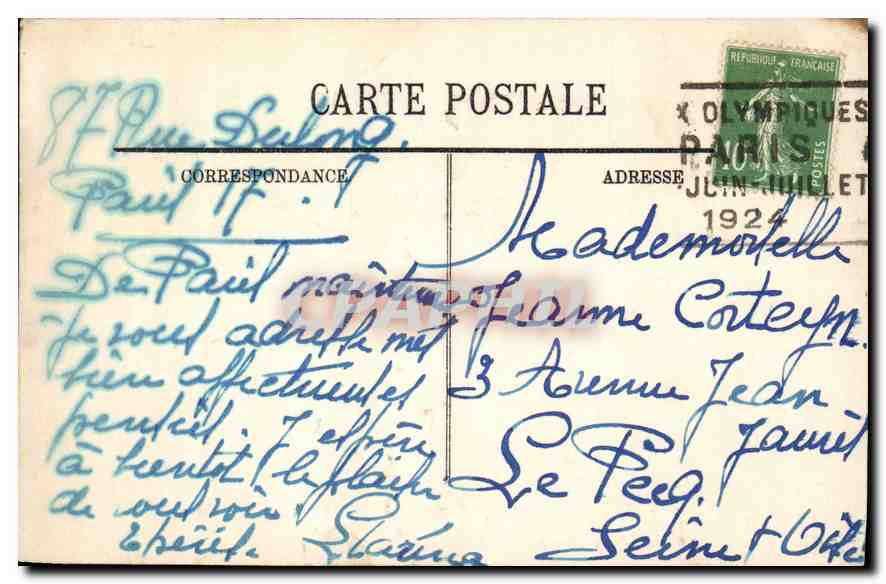 CARTE POSTALE
CORRESPONDANCE
ADRESSE
REPUBLIQUE FRANÇAISE
10
POSTES
X OLYMPIQUES
PARIS
JUIN-JUILLET
1924
87 Rue Dulong.
Paris 17.
De Paris maintenant
je vous adresse mes
bien affectueuses
pensées. J espère
à bientôt le plaisir
de vous voir.
Mademoiselle
Jeanne Corteyn.
3 Avenue Jean
Jaurès
Le Pecq.
Seine & Oise
CHAPITRE